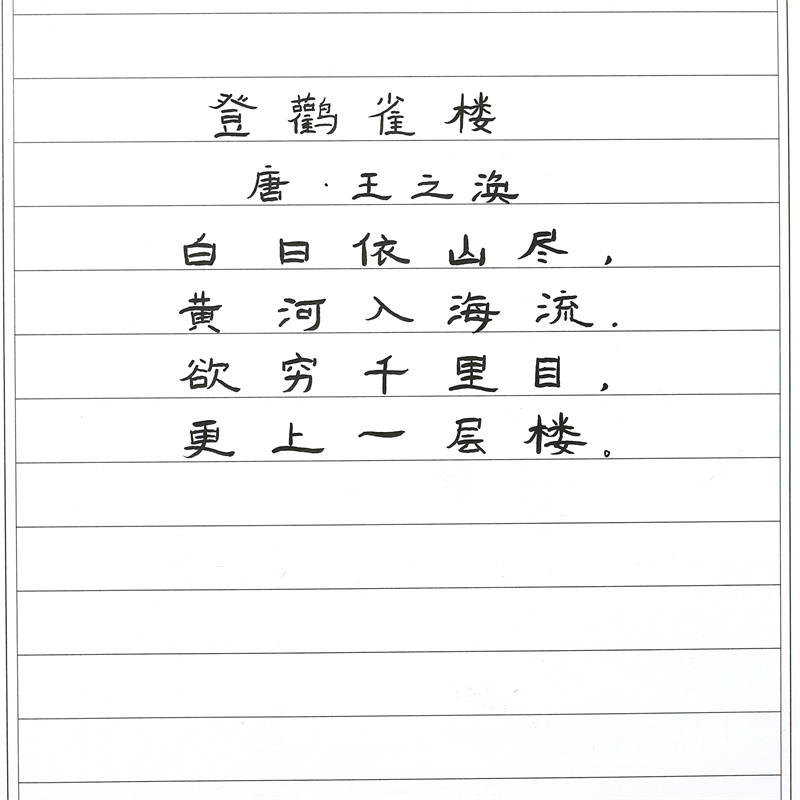 登鹳雀楼
唐·王之涣
白日依山尽，
黄河入海流.
欲穷千里目，
更上一层楼。